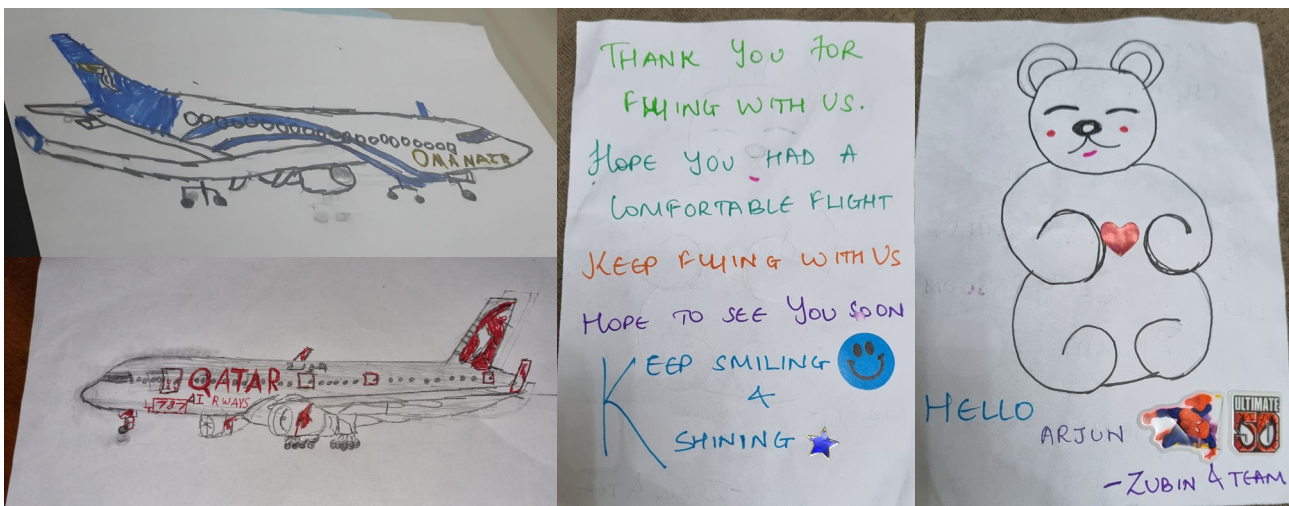 OMANAIR
QATAR
AIRWAYS
787
THANK YOU FOR
FLYING WITH US.
HOPE YOU HAD A
COMFORTABLE FLIGHT
KEEP FLYING WITH US
HOPE TO SEE YOU SOON
KEEP SMILING
&
SHINING
HELLO
ARJUN
ULTIMATE
50
- ZUBIN & TEAM